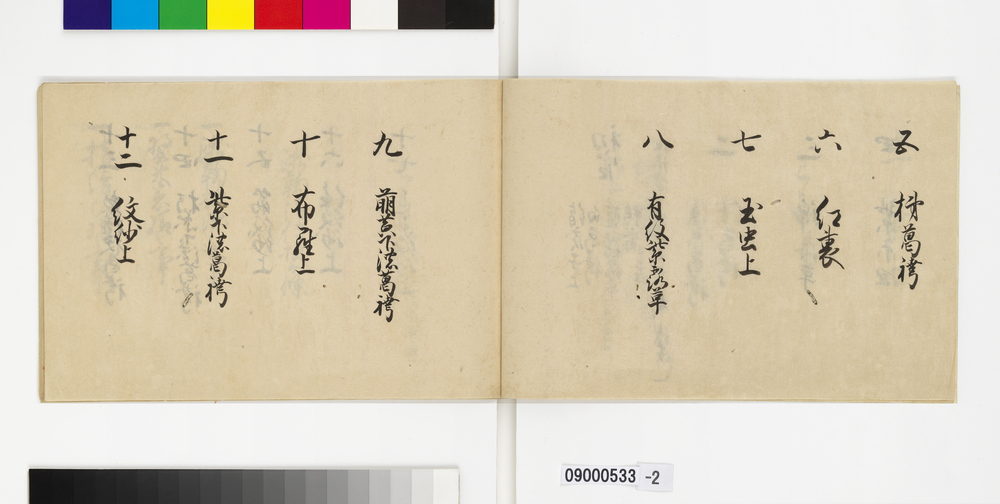 五 葛袴
六 紅裏
七 玉虫上
八 有紋紫
九 萌黄下濃葛袴
十 布羅上
十一 紫下濃葛袴
十二 紋紗上
09000533 -2